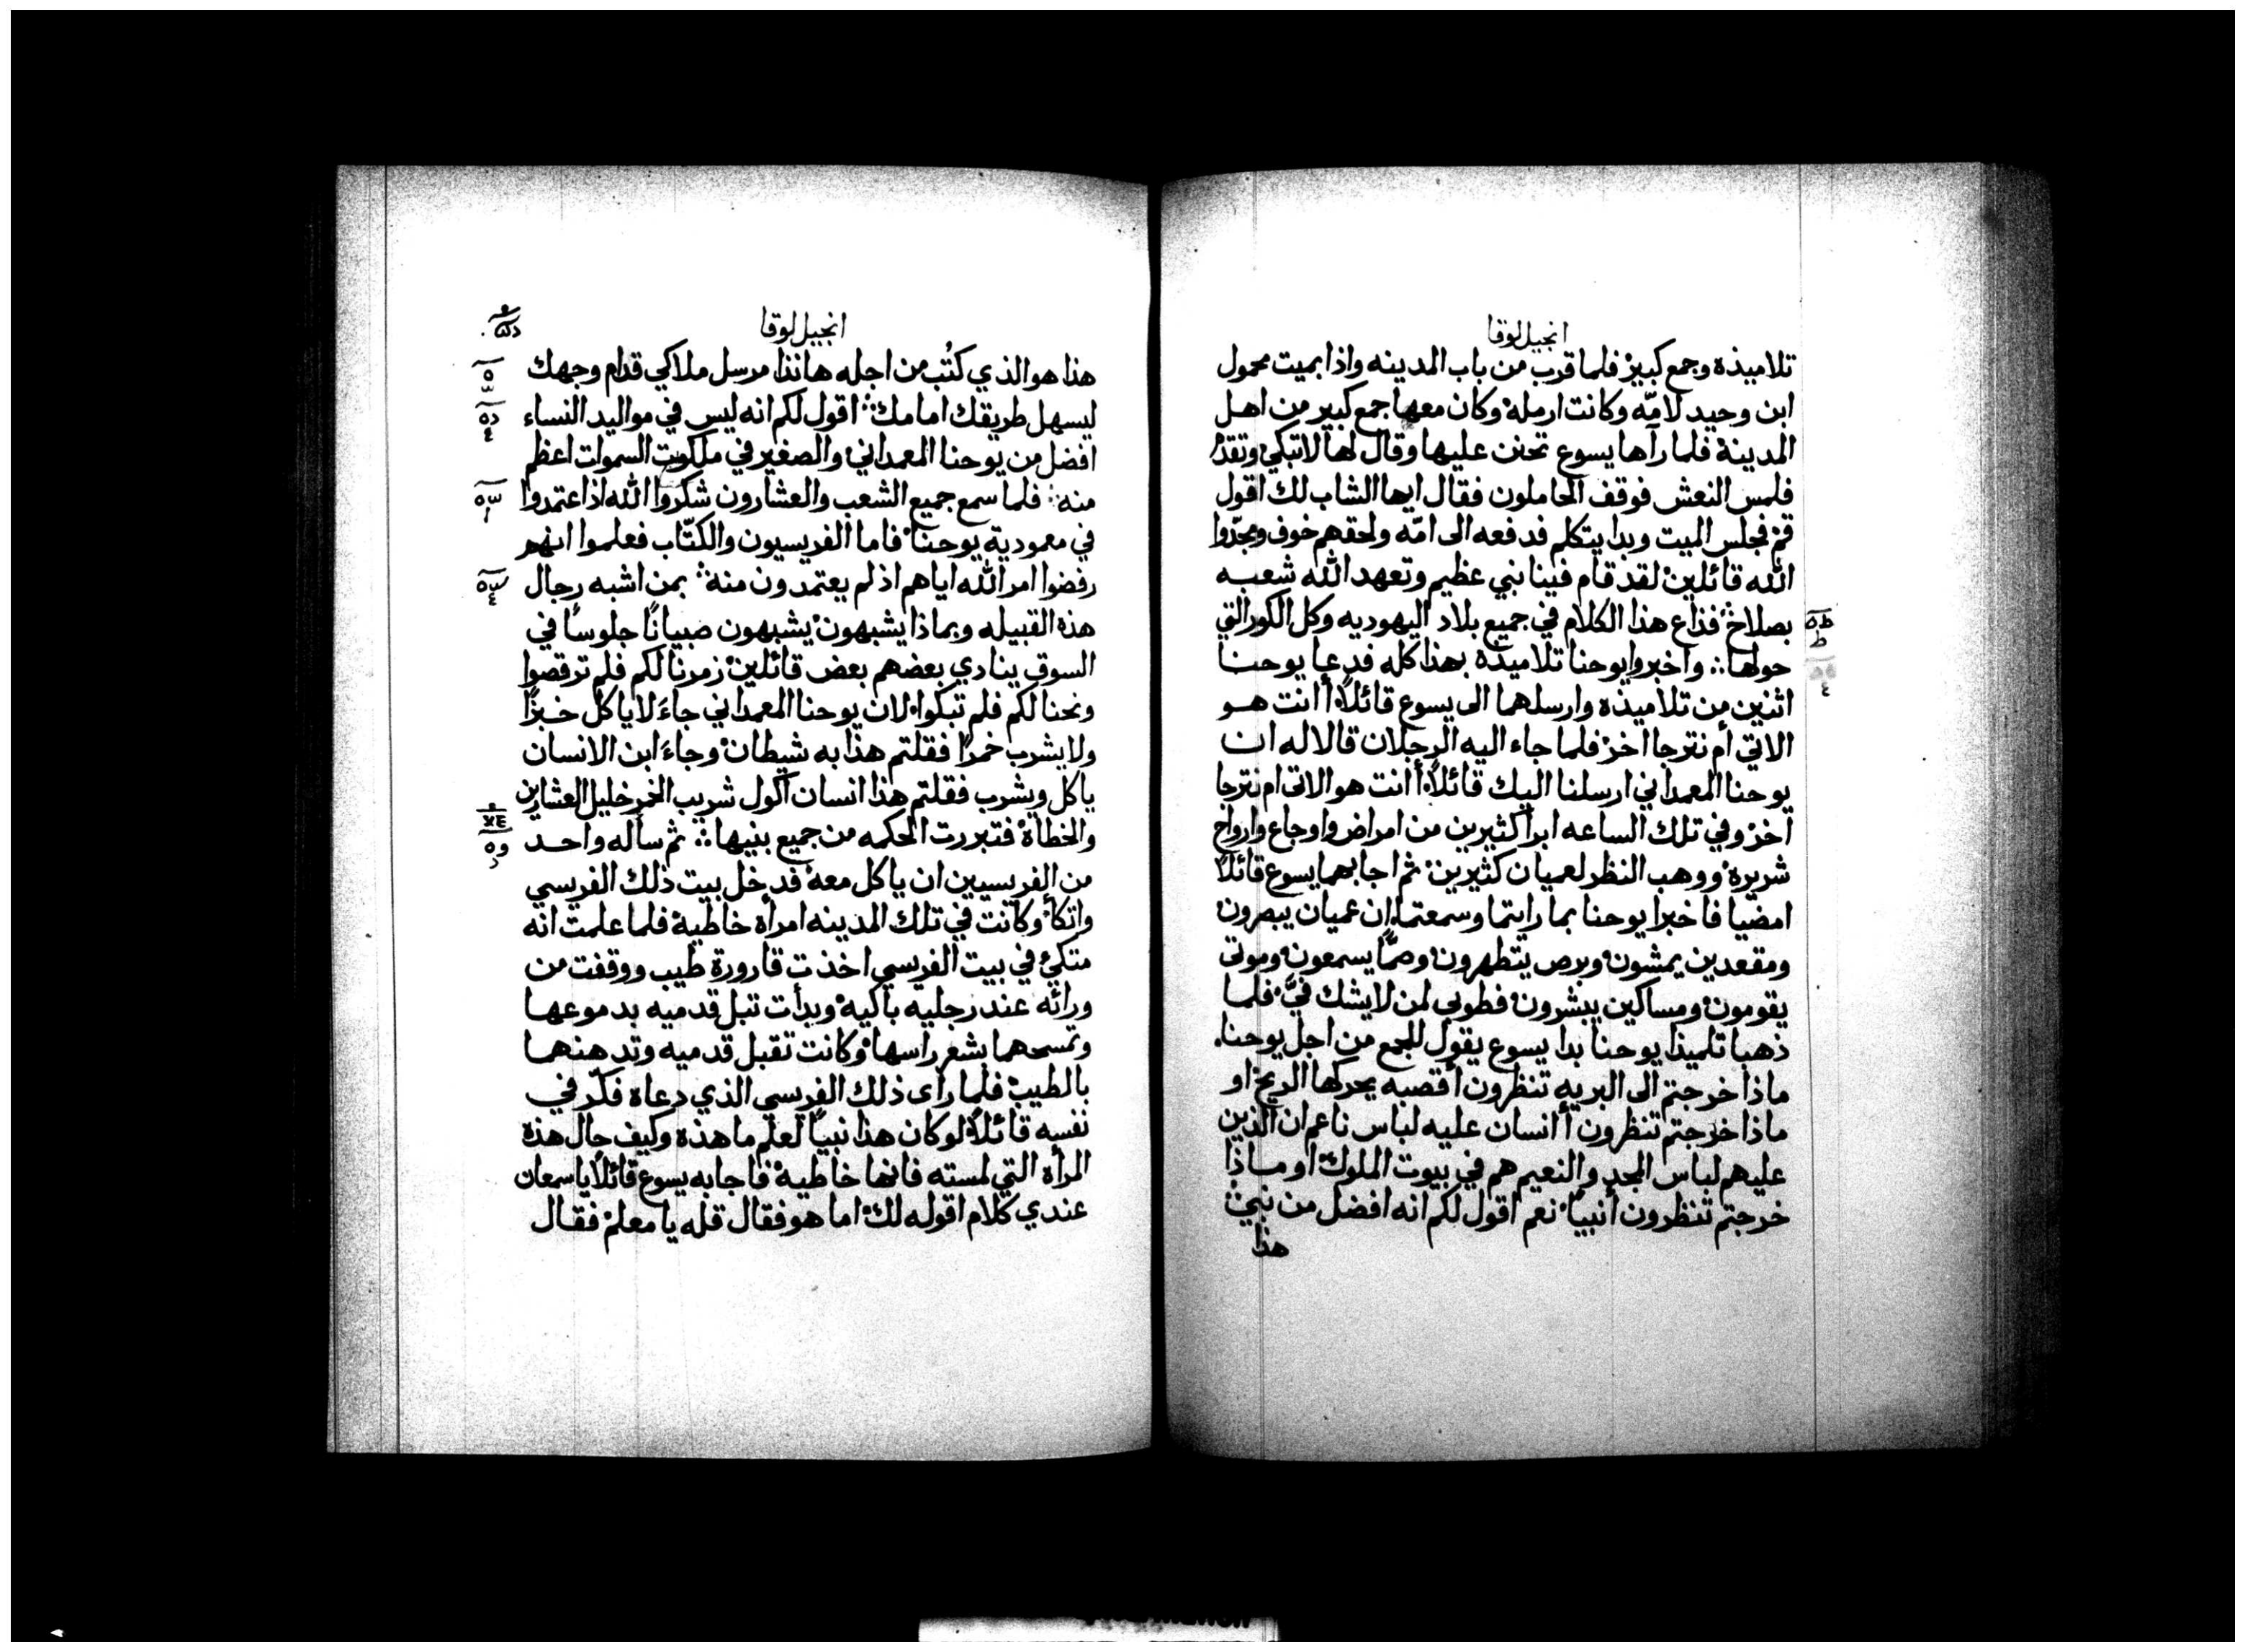 انجيل لوقا
تلاميذه وجمع كبير فلما قرب من باب المدينه واذا بميت محمول
ابن وحيد لامّه وكانت ارمله وكان معها جمع كبير من اهل
المدينة فلما رآها يسوع تحنن عليها وقال لها لا تبكي وتقدم
فلمس النعش فوقف الحاملون فقال ايها الشاب لك اقول
قم فجلس الميت وبدا يتكلم فدفعه الى امّه ولحقهم خوف ومجّدوا
الله قائلين لقد قام فينا نبي عظيم وتعهد الله شعبه
بصلاح فذاع هذا الكلام في جميع بلاد اليهوديه وكل الكور التي
حولها ∴ واخبروا يوحنا تلاميذه بهذا كله فدعا يوحنا
اثنين من تلاميذه وارسلهما الى يسوع قائلًا أانت هو
الاتي أم نترجا اخر فلما جاء اليه الرجلان قالا له ان
يوحنا المعمداني ارسلنا اليك قائلًا أانت هو الاتي ام نترجا
اخر وفي تلك الساعه ابرا كثيرين من امراض واوجاع وارواح
شريره ووهب النظر لعميان كثيرين ثم اجابهما يسوع قائلًا
امضيا فاخبرا يوحنا بما رايتما وسمعتما ان عميان يبصرون
ومقعدين يمشون وبرص يتطهرون وصمًّا يسمعون وموتى
يقومون ومساكين يبشرون فطوبى لمن لا يشك فيَّ فلما
ذهبا تلميذا يوحنا بدا يسوع يقول للجمع من اجل يوحنا
ماذا خرجتم الى البريه تنظرون أقصبه يحركها الريح او
ماذا خرجتم تنظرون أانسان عليه لباس ناعم ان الذين
عليهم لباس المجد والنعيم هم في بيوت الملوك او ماذا
خرجتم تنظرون أنبيًا نعم اقول لكم انه افضل من نبي
هذا
انجيل لوقا
هذا هو الذي كُتب من اجله هانذا مرسل ملاكي قدام وجهك
ليسهل طريقك امامك ∴ اقول لكم انه ليس في مواليد النساء
افضل من يوحنا المعمداني والصغير في ملكوت السموات اعظم
منه ∴ فلما سمع جميع الشعب والعشارون شكروا الله اذ اعتمدوا
في معمودية يوحنا فاما الفريسيون والكتّاب فعلموا انهم
رفضوا امر الله اياهم اذ لم يعتمدون منه ∴ بمن اشبه رجال
هذه القبيله وبماذا يشبهون يشبهون صبيانًا جلوسًا في
السوق ينادي بعضهم بعض قائلين زمرنا لكم فلم ترقصوا
ونحنا لكم فلم تبكوا لان يوحنا المعمداني جاءَ لا ياكل خبزًا
ولا يشرب خمرًا فقلتم هذا به شيطان وجاءَ ابن الانسان
ياكل ويشرب فقلتم هذا انسان اكول شريب الخمر خليل العشارين
والخطاة فتبررت الحكمه من جميع بنيها ∴ ثم سأله واحد
من الفريسيين ان ياكل معه فدخل بيت ذلك الفريسي
واتكأ وكانت في تلك المدينه امرأه خاطية فلما علمت انه
متكئ في بيت الفريسي اخذت قارورة طيب ووقفت من
ورائه عند رجليه باكيه وبدأت تبل قدميه بدموعها
وتمسحهما بشعر راسها وكانت تقبل قدميه وتدهنهما
بالطيب فلما رأى ذلك الفريسي الذي دعاه فكّر في
نفسه قائلًا لو كان هذا نبيًا لعلم ما هذه وكيف حال هذه
المرأه التي لمسته فانها خاطية فاجابه يسوع قائلًا يا سمعان
عندي كلام اقوله لك اما هو فقال قله يا معلم فقال